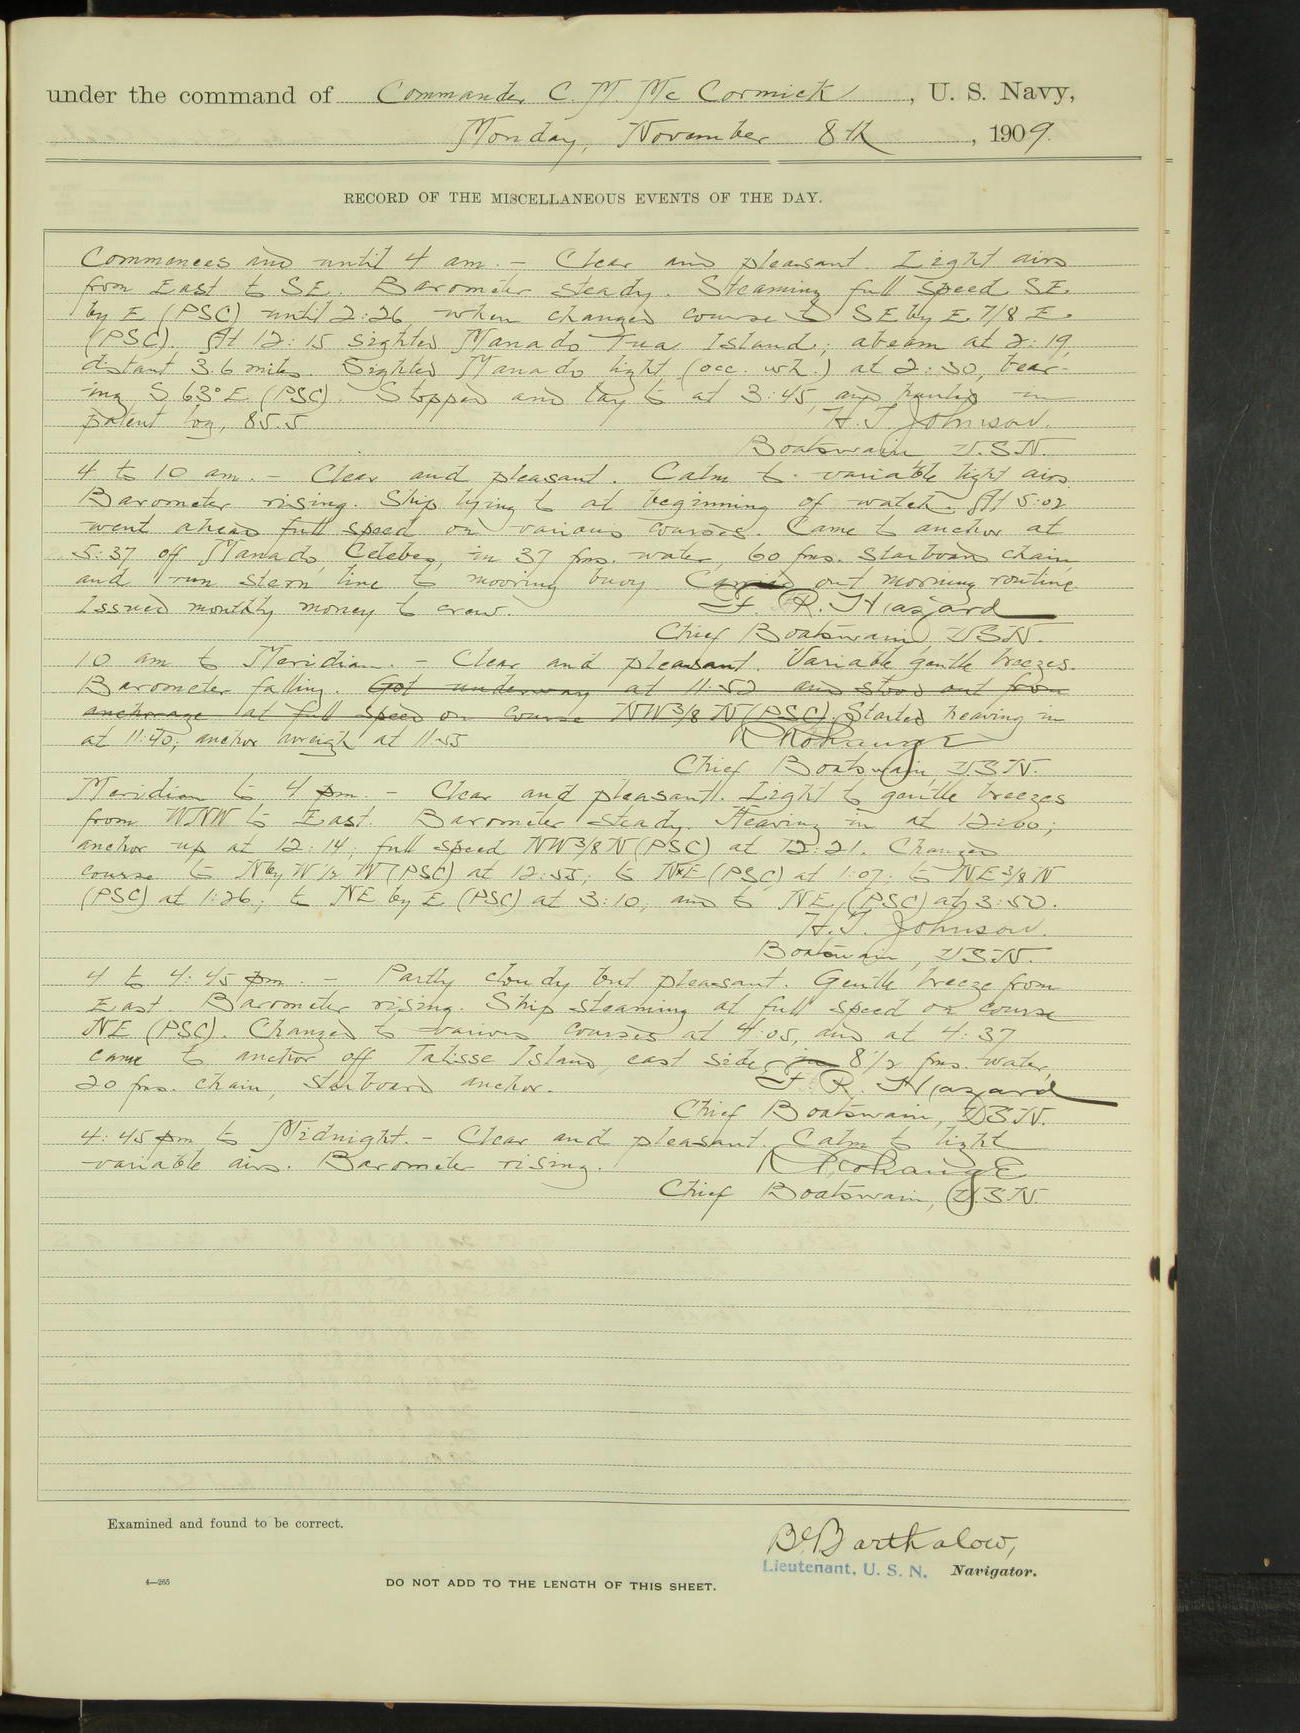 under the command of Commander C. M. McCormick, U. S. Navy,
Monday, November 8th, 1909.
RECORD OF THE MISCELLANEOUS EVENTS OF THE DAY.
Commences and until 4 am. - Clear and pleasant. Light airs
from East to SE. Barometer steady. Steaming full speed SE.
by E (PSC) until 2:26, when changed course to SE by E. 7/8 E.
(PSC). At 12:15 sighted Manado Tua Island; abeam at 2:19,
distant 3.6 miles. Sighted Manado light, (occ. wh.) at 2:30, bear-
ing S 63° E (PSC). Stopped and lay to at 3:45, and hauled in
patent log, 85.5 H. T. Johnson.
Boatswain, U.S.N.
4 to 10 am. - Clear and pleasant. Calm to variable light airs.
Barometer rising. Ship lying to at beginning of watch. At 5:02
went ahead full speed on various courses. Came to anchor at
5:37 off Manado, Celebes, in 37 fms. water, 60 fms. starboard chain,
and run stern line to mooring buoy. Carried out morning routine.
Issued monthly money to crew. F. R. Hazard
Chief Boatswain, USN.
10 am to Meridian. - Clear and pleasant. Variable gentle breezes.
Barometer falling. Got underway at 11:52 and stood out from
anchorage at full speed on course NW 3/8 N (PSC). Started heaving in
at 11:40; anchor aweigh at 11:55
Chief Boatswain, U.S.N.
Meridian to 4 pm. - Clear and pleasant. Light to gentle breezes
from WNW to East. Barometer steady. Heaving in at 12:00;
anchor up at 12:14; full speed NW 3/8 N (PSC) at 12:21. Changed
course to N by W 1/2 W (PSC) at 12:55; to NxE (PSC) at 1:07; to NE 3/8 N
(PSC) at 1:26; to NE by E (PSC) at 3:10; and to NE, (PSC) at 3:50.
H. T. Johnson.
Boatswain, USN.
4 to 4:45 pm. - Partly cloudy but pleasant. Gentle breeze from
East. Barometer rising. Ship steaming at full speed on course
NE (PSC). Changed to various courses at 4:05, and at 4:37
came to anchor off Talisse Island, east side, in 8 1/2 fms. water,
20 fms. chain, starboard anchor. F. R. Hazard
Chief Boatswain, USN.
4:45 pm to Midnight. - Clear and pleasant. Calm to light
variable airs. Barometer rising.
Chief Boatswain, U.S.N.
Examined and found to be correct.
B Barthalow,
Lieutenant, U. S. N. Navigator.
4—265
DO NOT ADD TO THE LENGTH OF THIS SHEET.